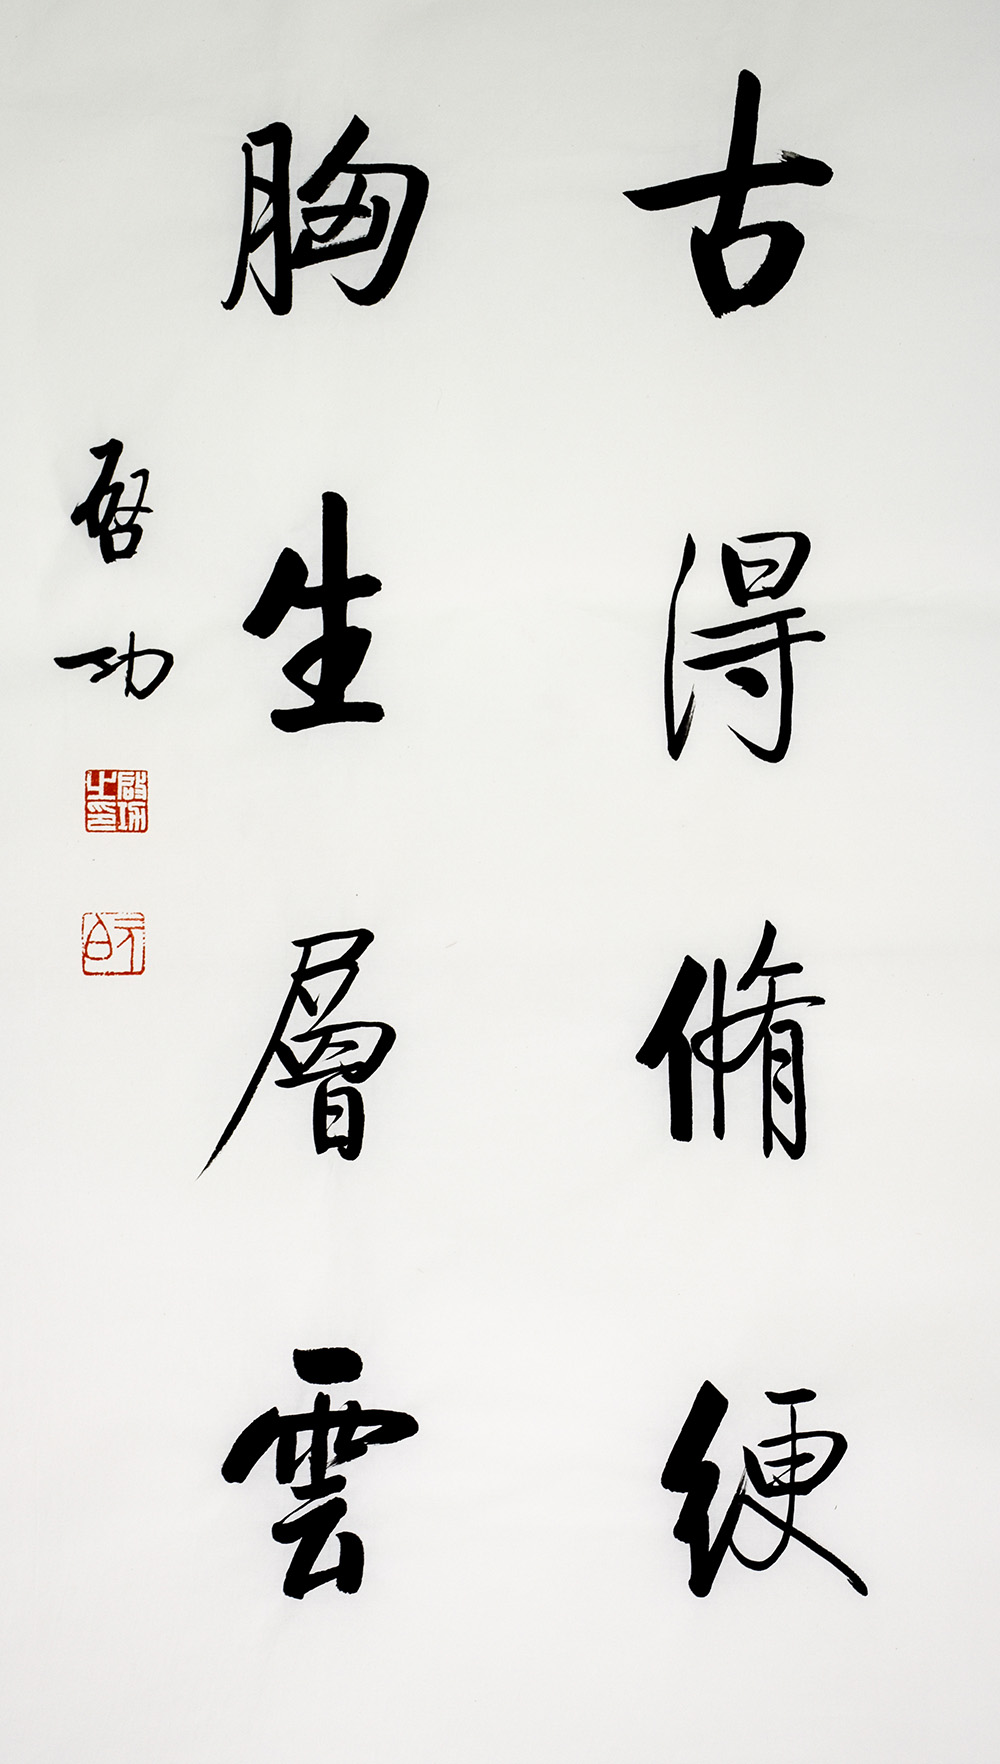 古得脩綆
胸生層雲
啓功
啟功之印
元白